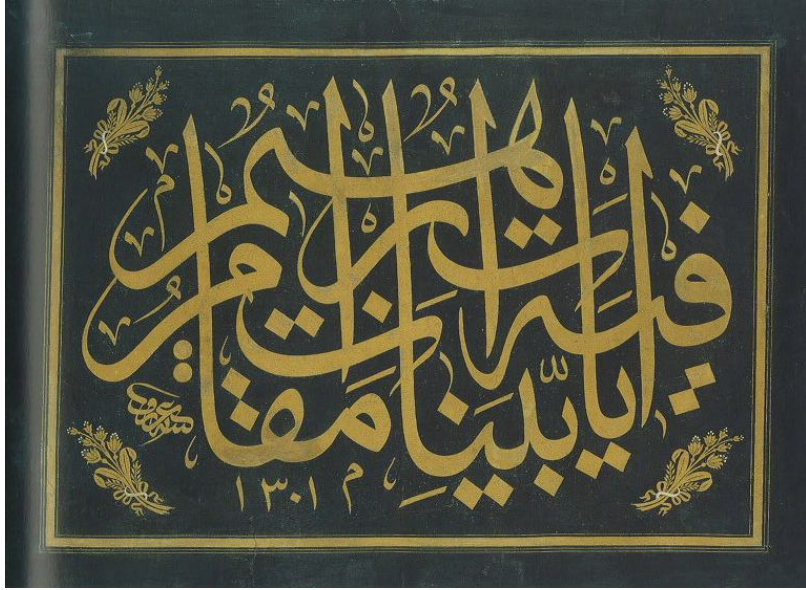 فيه آيات بينات مقام إبراهيم
١٣٠١